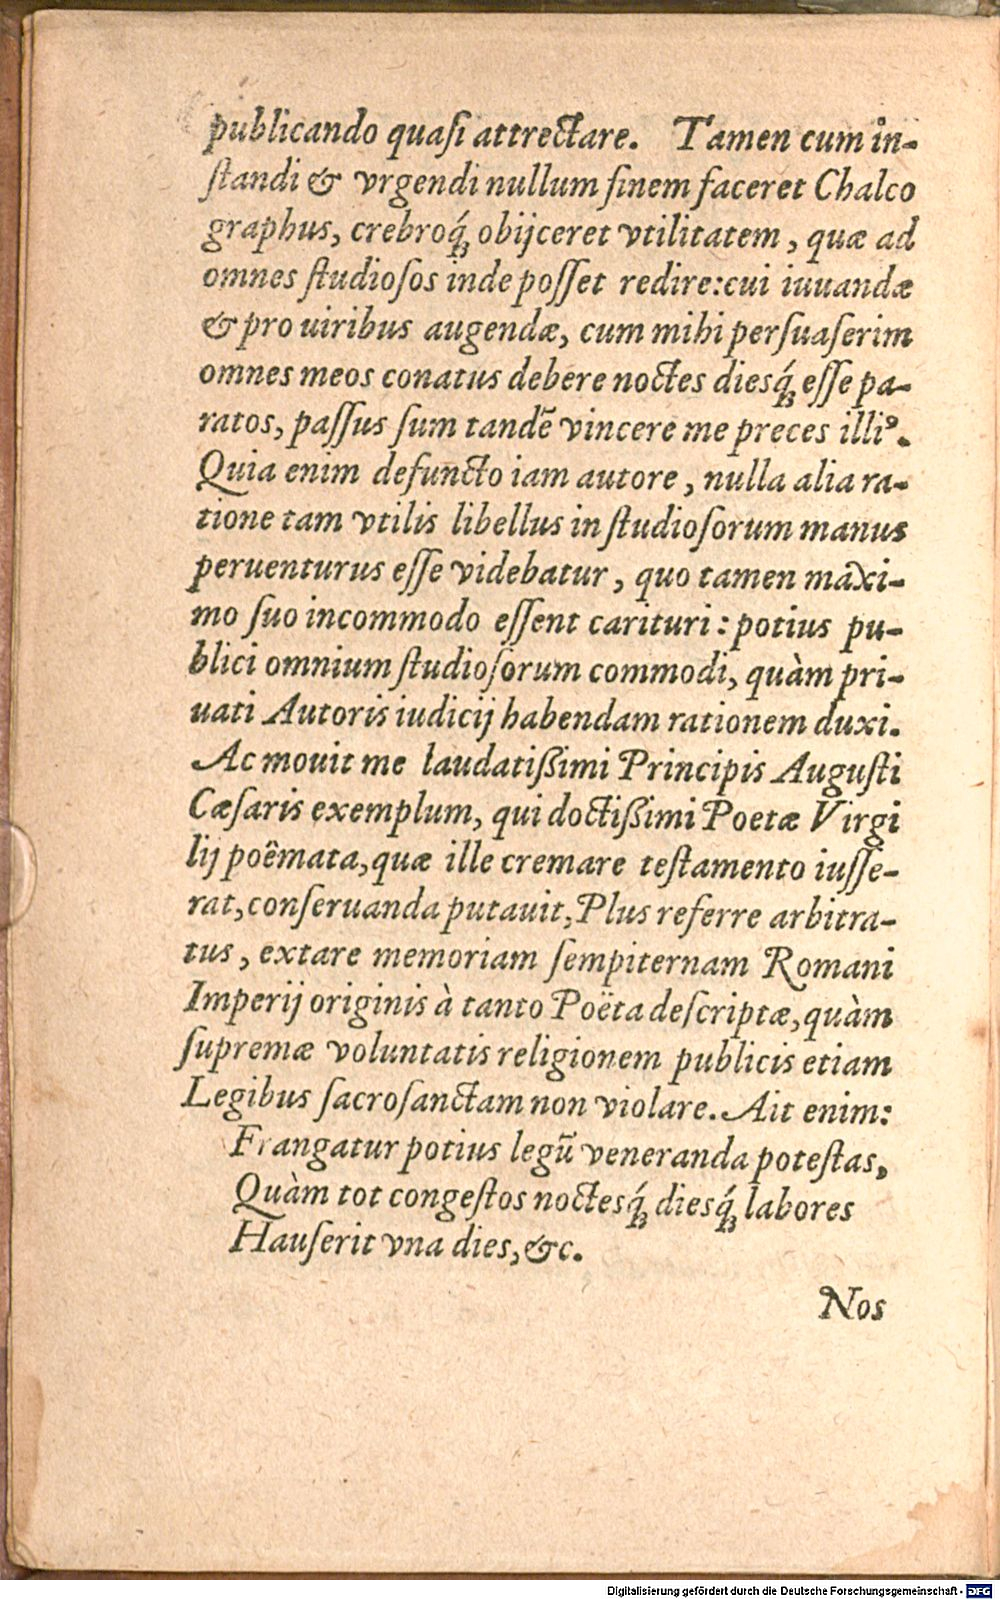 publicando quaſi attrectare. Tamen cum in-
ſtandi & vrgendi nullum ſinem faceret Chalco
graphus, crebroq́ꝫ obijceret vtilitatem, quæ ad
omnes ſtudioſos inde poſſet redire: cui iuuandæ
& pro uiribus augendæ, cum mihi perſuaſerim
omnes meos conatus debere noctes diesq́ꝫ eſſe pa-
ratos, paſſus ſum tandē vincere me preces illiꝰ.
Quia enim defuncto iam autore, nulla alia ra-
tione tam vtilis libellus in ſtudioſorum manus
peruenturus eſſe videbatur, quo tamen maxi-
mo ſuo incommodo eſſent carituri: potius pu-
blici omnium ſtudioſorum commodi, quàm pri-
uati Autoris iudicij habendam rationem duxi.
Ac mouit me laudatißimi Principis Auguſti
Cæſaris exemplum, qui doctißimi Poetæ Virgi
lij poêmata, quæ ille cremare teſtamento iuſſe-
rat, conſeruanda putauit, Plus referre arbitra-
tus, extare memoriam ſempiternam Romani
Imperij originis à tanto Poëta deſcriptæ, quàm
ſupremæ voluntatis religionem publicis etiam
Legibus ſacroſanctam non violare. Ait enim:
Frangatur potius legū veneranda poteſtas,
Quàm tot congeſtos noctesq́ꝫ diesq́ꝫ labores
Hauſerit vna dies, &c.
Nos
Digitalisierung gefördert durch die Deutsche Forschungsgemeinschaft - DFG